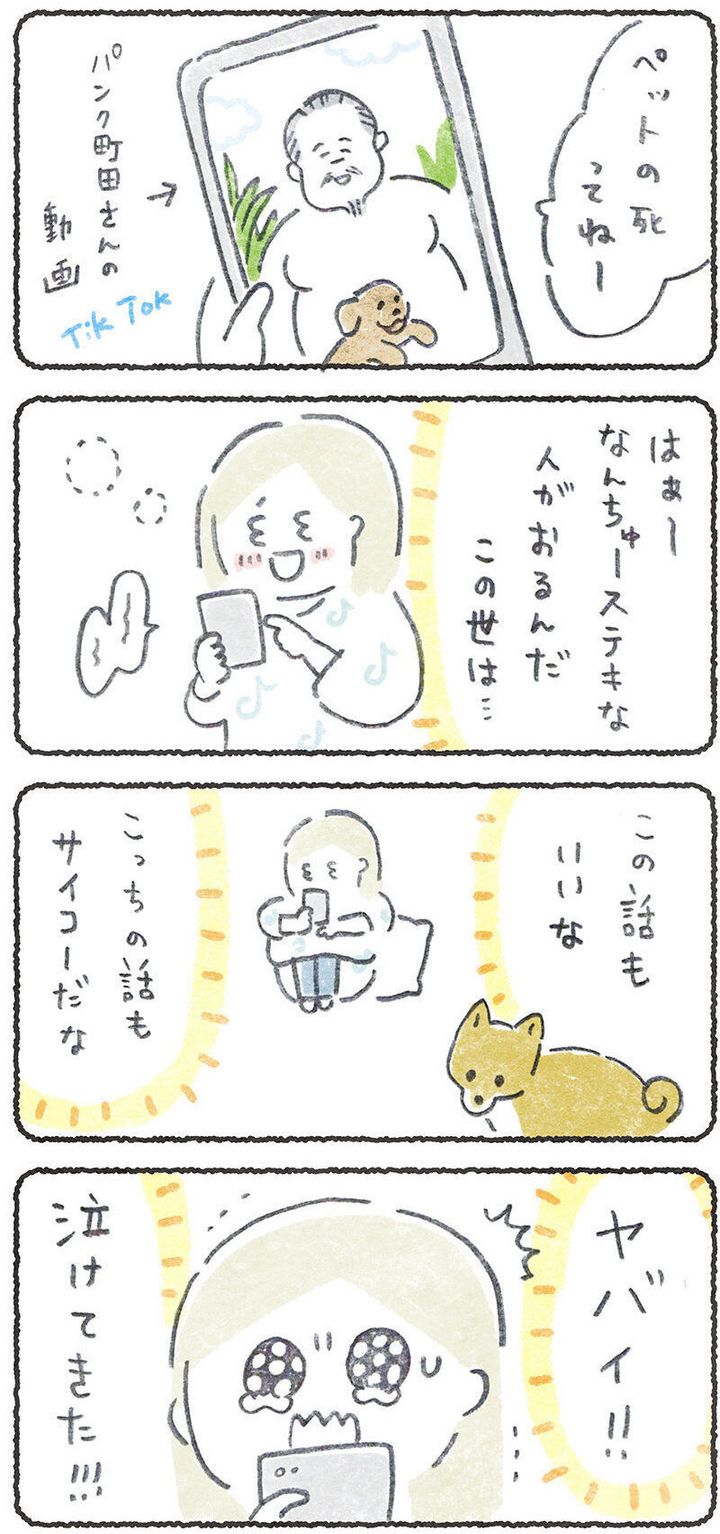 ペットの死
ってねー
パンク町田さんの
動画
Tik Tok
はぁー
なんちゅーステキな
人がおるんだ
この世は…
この話も
いいな
こっちの話も
サイコーだな
ヤバイ!!
泣けてきた!!!